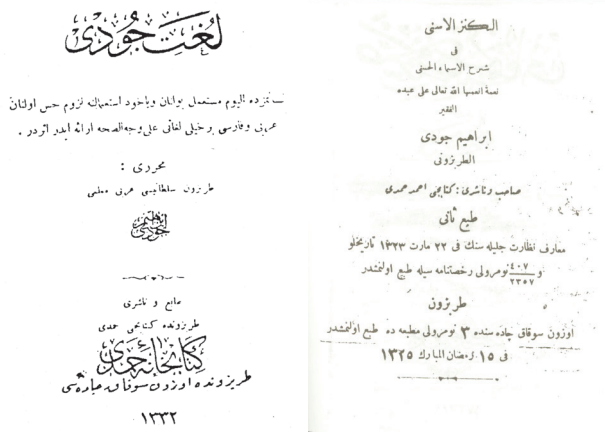 لغت جودی
لسانمزده الیوم مستعمل بولنان ویاخود استعمالنه لزوم حس اولنان
عربی وفارسی برخیلی لغاتی علی وجه الصحه ارائه ایدر اثردر .
محرری :
طربزون سلطانیسی عربی معلمی
ابراهیم جودی
طابع و ناشری
طربزونده کتابجی حمدی
کتابخانهٔ حمدی
طربزونده اوزون سوقاق جاده سی
١٣٣٢
الکنز الاسنی
فی
شرح الاسماء الحسنی
لعبده الفقیر
ابراهیم جودی
الطربزونی
صاحب و ناشری : کتابجی احمد حمدی
طبع ثانی
معارف نظارت جلیله سنك فی ٢٢ مارت ١٣٢٣ تاریخلو
و ٤٠٧/٢٣٥٧ نومرولی رخصتنامه سیله طبع اولنمشدر
طربزون
اوزون سوقاق جاده سنده ٣ نومرولی مطبعه ده طبع اولنمشدر
فی ١٥ رمضان المبارك ١٣٢٥